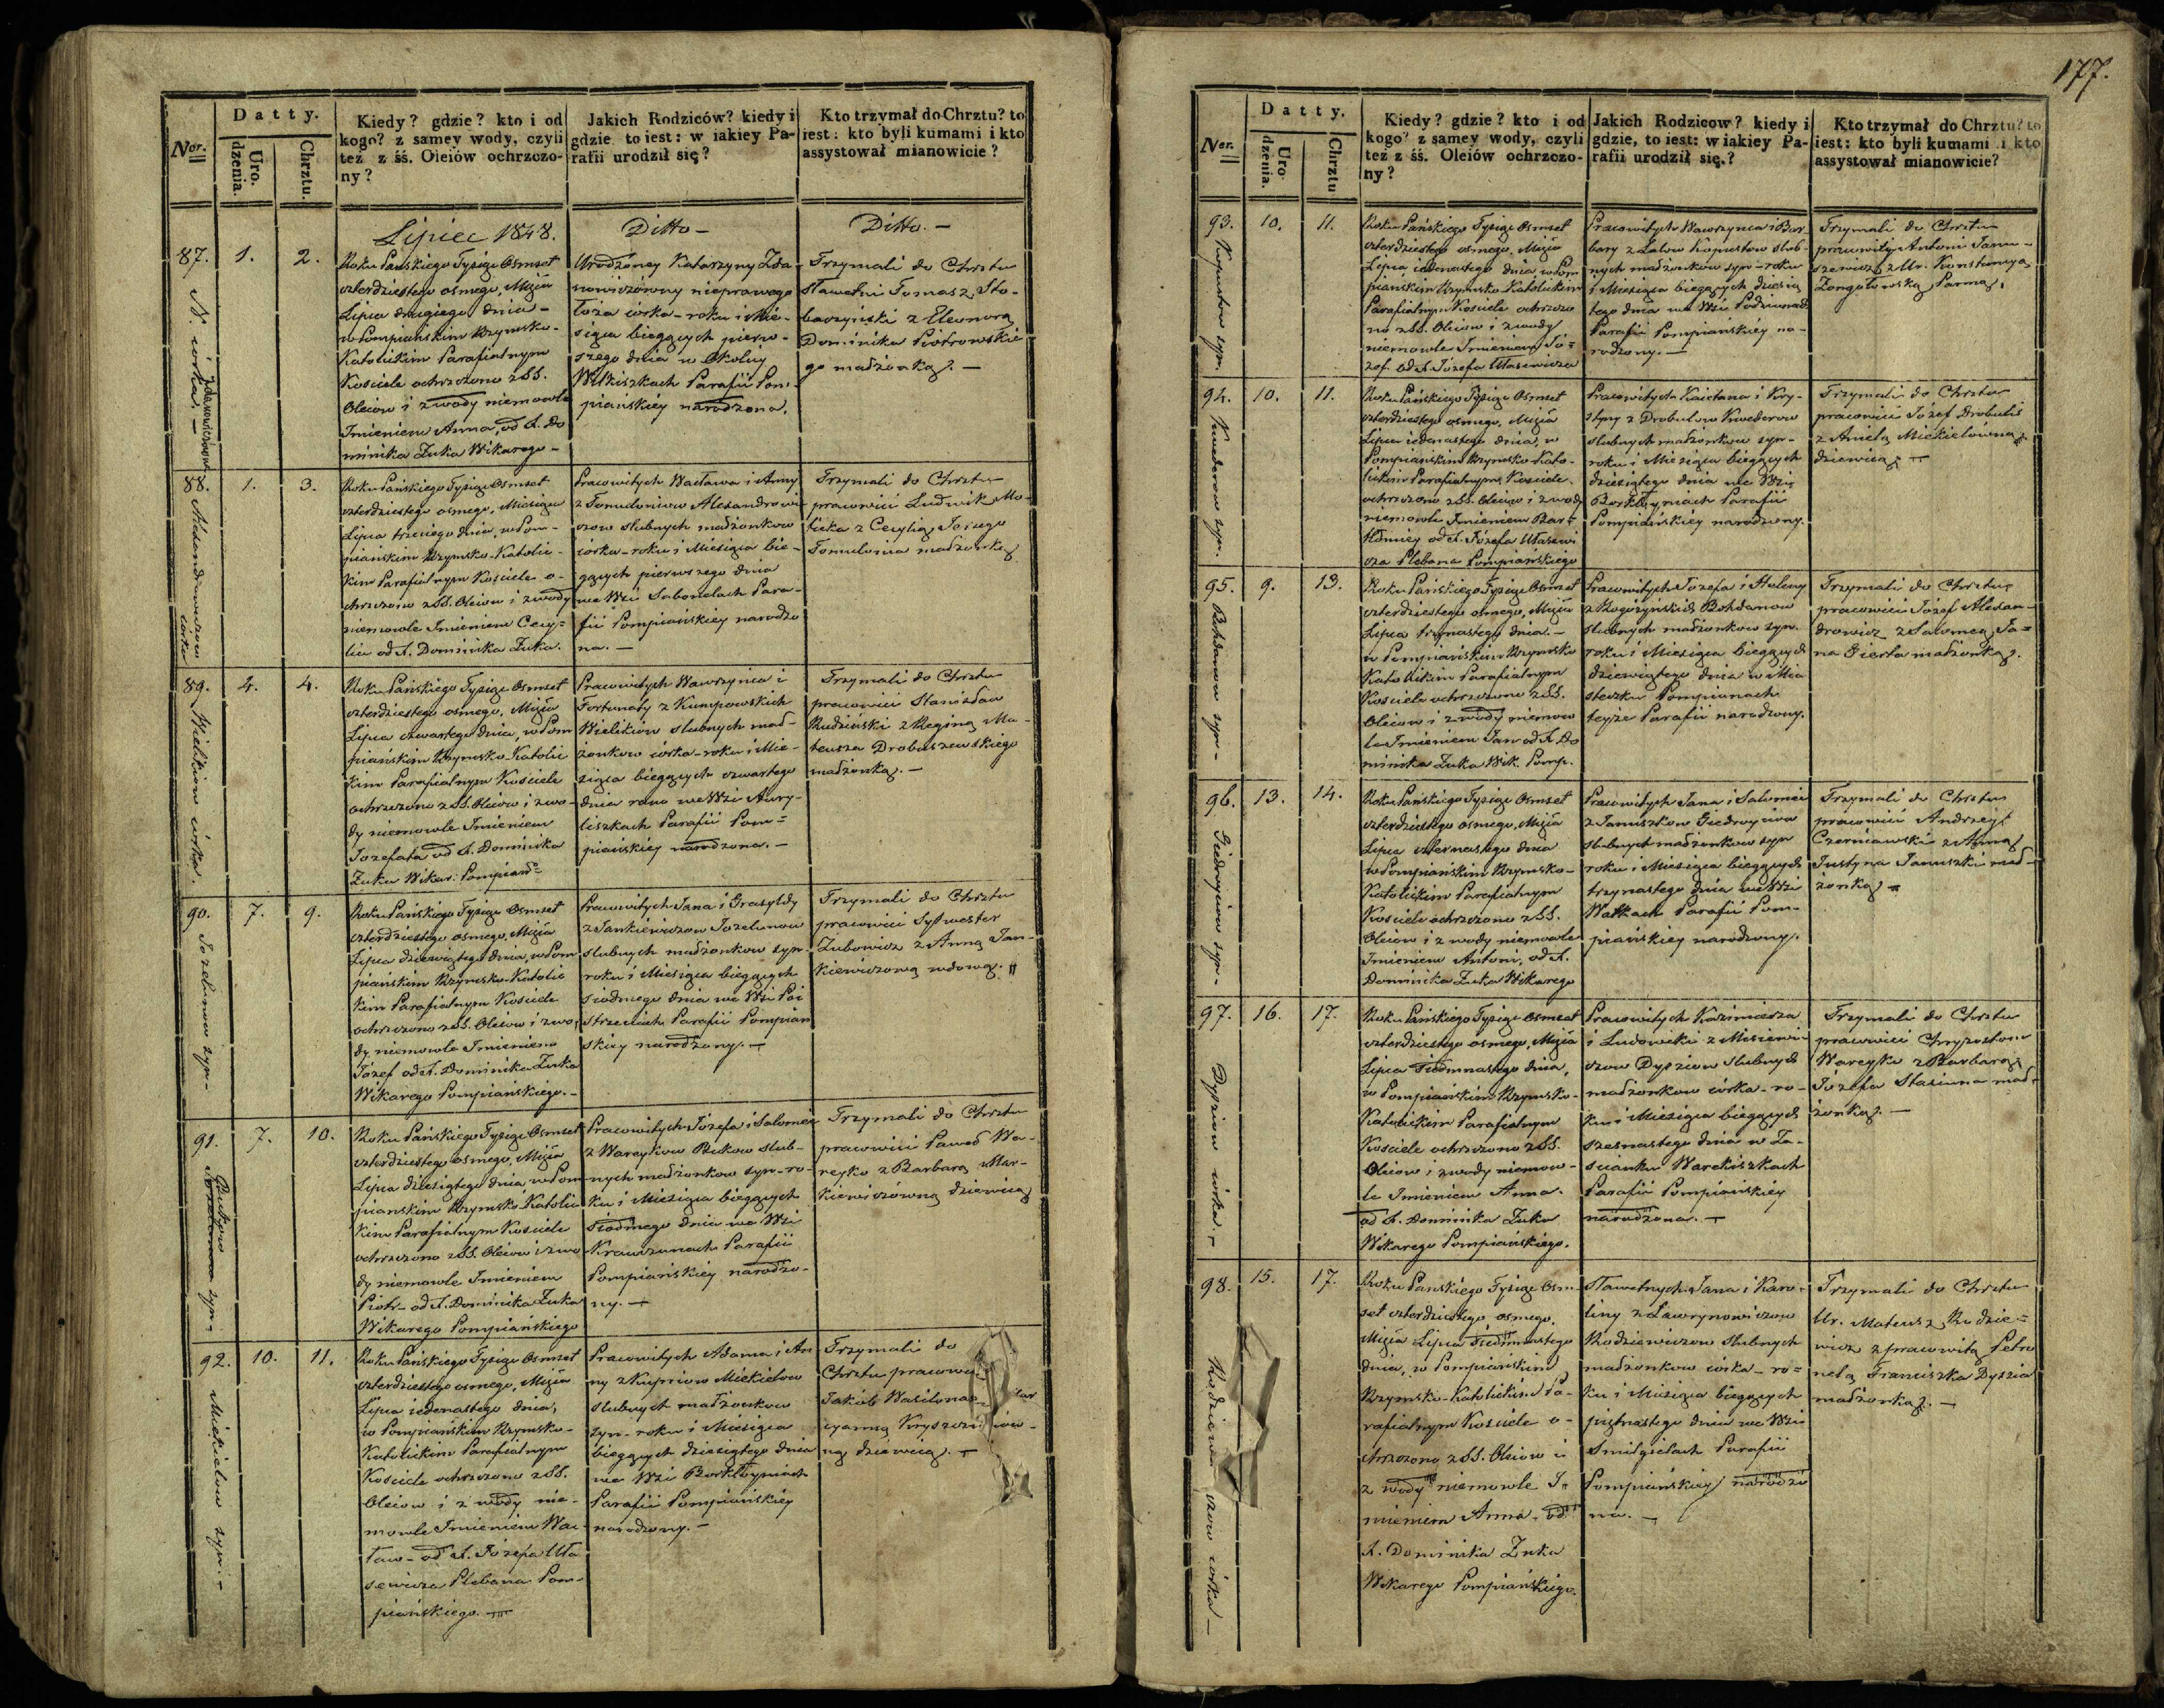 Ner.
Datty.
Uro.
dzenia.
Chrztu.
Kiedy? gdzie? kto i od
kogo? z samey wody, czyli
też z śś. Oleiów ochrzczo-
ny?
Jakich Rodziców? kiedy i
gdzie to iest: w iakiey Pa-
rafii urodził się?
Kto trzymał do Chrztu? to
iest: kto byli kumami i kto
assystował mianowicie?
Lipiec 1848.
Ditto –
Ditto. –
87.
N. córka. –
1.
2.
Roku Pańskiego Tysiąc Osmset
czterdziestego osmego, Msca
Lipca drugiego dnia –
w Pompiańskim Rzymsko-
Katolickim Parafialnym
Kosciele ochrzczono z SS.
Oleiow i z wody niemowle
Imieniem Anna, od X. Do
minika Zuka Wikarego –
Urodzoney Katarzyny Zda
nowiczówny nieprawego
łoża córka – roku i Mie-
siąca bieżących pierw-
szego dnia w Okolicy
Wilkiszkach Parafii Pom-
piańskiéy narodzona.
Trzymali do Chrztu
sławetni Tomasz Sto-
baczyński z Eleonorą
Dominika Piotrowskie
go małżonką. –
88.
Alexandrowiczow
córka
1.
3.
Roku Pańskiego Tysiąc Osmset
czterdziestego osmego, Miesiąca
Lipca trzeciego dnia, w Pom-
piańskim Rzymsko-Katolic-
kim Parafialnym Kosciele o-
chrzczono z SS. Oleiow i z wody
niemowle Imieniem Cecy=
lia od X. Dominika Zuka.
Pracowitych Wacława i Anny
z Tomuloniow Alexandrowi
czow slubnych małżonkow
córka – roku i Miesiąca bie-
gących pierwszego dnia
we Wsi Sabonelach Para-
fii Pompiańskiey narodzo
na. –
Trzymali do Chrztu
pracowici Ludwik Mo-
ticka z Cecylią Jozego
Tomulonia małżonką
89.
Wielikiow córka.
4.
4.
Roku Pańskiego Tysiąc Osmset
czterdziestego osmego, Msca
Lipca czwartego dnia, w Pom
piańskim Rzymsko Katolic
kim Parafialnym Kosciele
ochrzczono z SS. Oleiow i z wo-
dy niemowle Imieniem
Jozefata od X. Dominika
Zuka Wikar: Pompiań=
Pracowitych Wawrzynca i
Fortunaty z Kumpowskich
Wielikiow slubnych mał-
żonkow córka – roku i Mie-
siąca bieżących czwartego
dnia rano we Wsi Aury-
liszkach Parafii Pom=
piańskiey narodzona. –
Trzymali do Chrztu
pracowici Stanisław
Rudziński z Reginą Ma-
teusza Drobuszewskiego
małżonką. –
90.
Jozelunow syn –
7.
9.
Roku Pańskiego Tysiąc Osmset
czterdziestego osmego, Msca
Lipca dziewiątego dnia, w Pom
piańskim Rzymsko-Katolic
kim Parafialnym Kosciele
ochrzczono z SS. Oleiow i z wo-
dy niemowle Imieniem
Józef od X. Dominika Zuka
Wikarego Pompiańskiego. –
Pracowitych Jana i Grasyldy
z Jankiewiczow Jozelunow
slubnych małżonkow syn –
roku i Miesiąca bieżących
siodmego dnia we Wsi Poi
strzeciach Parafii Pompiań
skiey narodzony. –
Trzymali do Chrztu
pracowici Sylwester
Zubowicz z Anną Jan-
kiewiczową wdową.
91.
Bukow
syn –
7.
10.
Roku Pańskiego Tysiąc Osmset
czterdziestego osmego, Msca
Lipca dziesiątego dnia, w Pom
piańskim Rzymsko Katolic
kim Parafialnym Kosciele
ochrzczono z SS. Oleiow i z wo
dy niemowle Imieniem
Piotr – od X. Dominika Zuka
Wikarego Pompiańskiego
Pracowitych Józefa i Salomei
z Wareykow Bukow slub-
nych małżonkow syn – ro-
ku i Miesiąca bieżących
siodmego dnia we Wsi
Krawczunach Parafii
Pompiańskiéy narodzo-
ny. –
Trzymali do Chrztu
pracowici Paweł Wa-
reyko z Barbarą Mar-
kiewiczówną dziewicą
92.
Mickielow syn. –
10.
11.
Roku Pańskiego Tysiąc Osmset
czterdziestego osmego, Msca
Lipca iedenastego dnia,
w Pompiańskim Rzymsko-
Katolickim Parafialnym
Kosciele ochrzczono z SS.
Oleiow i z wody nie-
mowle Imieniem Wac
ław – od X. Józefa Uła
sewicza Plebana Pom-
piańskiego. –
Pracowitych Adama i An
ny z Kupriow Mickielow
slubnych małżonkow
syn – roku i Miesiąca
bieżących dziesiątego dnia
we Wsi Borkłoyniach
Parafii Pompiańskiéy
narodzony. –
Trzymali do
Chrztu pracowi
Jakób Wasilonas
cyanną
ną dziewicą. –
177.
Ner.
Datty.
Uro
dzenia.
Chrztu
Kiedy? gdzie? kto i od
kogo? z samey wody, czyli
też z śś. Oleiów ochrzczo-
ny?
Jakich Rodzicow? kiedy i
gdzie, to iest: w iakiey Pa-
rafii urodził się.?
Kto trzymał do Chrztu? to
iest: kto byli kumami i kto
assystował mianowicie?
93.
Koputow syn.
10.
11.
Roku Pańskiego Tysiąc Osmset
czterdziestego osmego, Msca
Lipca iedenastego dnia, w Pom
piańskim Rzymsko-Katolickim
Parafialnym Kosciele ochrzczo
no z SS. Oleiow i z wody
niemowle Imieniem Jó=
zef. od X. Józefa Ułasewicza
Pracowitych Wawrzynca i Bar
bary z Lalow Koputow slub-
nych małżonkow syn – roku
i Miesiąca bieżących dziesią
tego dnia we Wsi
Parafii Pompiańskiéy na-
rodzony. –
Trzymali do Chrztu
pracowity Antoni Janu-
szewicz z Ur. Konstancyą
Zongołowską Panną.
94.
Kwederow syn. –
10.
11.
Roku Pańskiego Tysiąc Osmset
czterdziestego osmego, Msca
Lipca iedenastego dnia, w
Pompiańskim Rzymsko-Kato-
lickim Parafialnym Kosciele
ochrzczono z SS. Oleiow i z wody
niemowle Imieniem Bar=
tłomiey od X. Józefa Ułasewi
cza Plebana Pompiańskiego
Pracowitych Kaietana i Kry-
styny z Drobulow Kwederow
slubnych małżonkow syn –
roku i Miesiąca bieżących
dziesiątego dnia we Wsi
Borkłoyniach Parafii
Pompiańskiéy narodzony.
Trzymali do Chrztu
pracowici Józef Drobulis
z Anielą Mickielówną
dziewicą. –
95.
Bohdanow syn –
9.
13.
Roku Pańskiego Tysiąc Osmset
czterdziestego osmego, Msca
Lipca trzynastego dnia. –
w Pompiańskim Rzymsko
Katolickim Parafialnym
Kosciele ochrzczono z SS.
Oleiow i z wody niemow
le Imieniem Jan od X. Do
minika Zuka Wik. Pomp.
Pracowitych Józefa i Heleny
z Rogożyńskich Bohdanow
slubnych małżonkow syn.
roku i Miesiąca bieżących
dziewiątego dnia w Mia
steczku Pompianach
teyże Parafii narodzony.
Trzymali do Chrztu
pracowici Józef Alexan-
drowicz z Salomeą Ja=
na Gierta małżonką.
96.
Giedroyciow syn –
13.
14.
Roku Pańskiego Tysiąc Osmset
czterdziestego osmego, Msca
Lipca czternastego dnia
w Pompiańskim Rzymsko-
Katolickim Parafialnym
Kosciele ochrzczono z SS.
Oleiow i z wody niemowle
Imieniem Antoni, od X.
Dominika Zuka Wikarego
Pracowitych Jana i Salomei
z Januszkow Giedroyciow
slubnych małżonkow syn
roku i Miesiąca bieżących
trzynastego dnia we Wsi
Wałkach Parafii Pom-
piańskiey narodzony.
Trzymali do Chrztu
pracowici Andrzey
Czerniawski z Anną
Justyna Januszki mał-
żonką –
97.
Dysziow córka. –
16.
17.
Roku Pańskiego Tysiąc Osmset
czterdziestego osmego, Msca
Lipca siodmnastego dnia,
w Pompiańskim Rzymsko-
Katolickim Parafialnym
Kosciele ochrzczono z SS.
Oleiow i z wody niemow-
le Imieniem Anna.
od X. Dominika Zuka
Wikarego Pompiańskiego.
Pracowitych Kazimierza
i Ludowiki z Misiewi
czow Dysziow slubnych
małżonkow córka – ro-
ku i Miesiąca bieżących
szesnastego dnia w Za-
scianku Warekiszkach
Parafii Pompiańskiéy
narodzona. –
Trzymali do Chrztu
pracowici Chryzostom
Wareyko z Barbarą
Józefa Stasiuna mał-
żonką. –
98.
córka –
15.
17.
Roku Pańskiego Tysiąc Osm-
set czterdziestego osmego,
Msca Lipca siedmnastego
dnia, w Pompiańskim
Rzymsko-Katolickim Pa-
rafialnym Kosciele o-
chrzczono z SS. Oleiow i
z wody niemowle I-
mieniem Anna, od
X. Dominika Zuka
Wikarego Pompiańskiego.
Sławetnych Jana i Karo-
liny z Ławrynowiczow
Rodziewiczow slubnych
małżonkow córka – ro=
ku i Miesiąca bieżących
piętnastego dnia we Wsi
Smilgielach Parafii
Pompiańskiéy narodzo
na. –
Trzymali do Chrztu
Ur. Mateusz Rodzie=
wicz z pracowitą Petro
nelą Franciszka Dyszia
małżonką. –